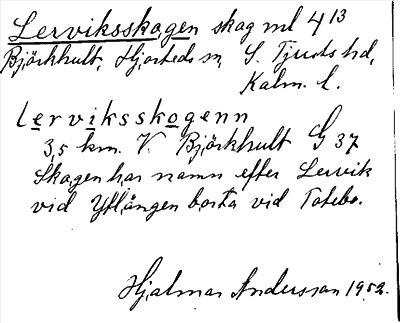 Lerviksskagen skog ml 4 13
Björkhult, Hjorteds sn, S. Tjusts hd,
Kalm. l.
lerviksskogenn
3,5 km. V. Björkhult G 37
Skogen har namn efter Lervik
vid Yxlången borta vid Totebo.
Hjalmar Andersson 1952.